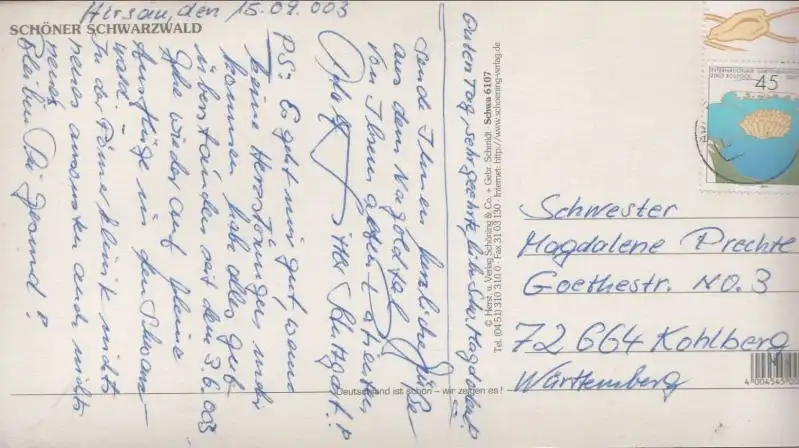 Hirsau, den 15.09.003
SCHÖNER SCHWARZWALD
Guten Tag, sehr geehrte, liebe Schw. Magdalena!
sende Ihnen herzliche Grüße
aus dem Nagoldtal
von Ihrem alten Patienten,
P.S: Es geht mir gut, wenn
keine Herzstörungen mehr
kommen, habe alles gut
überstanden seit dem 3.6.003
Gehe wieder auf kleine
Ausflüge in den Schwarz-
wald.
In der Filderklinik nichts
neues ansonsten auch nichts
neues
Bleiben Sie gesund!
© Herst. u. Verlag Schöning & Co. + Gebr. Schmidt Schwa 6107
Tel. (04 51) 310 310 0 · Fax 31 03 130 · Internet: http://www.schoening-verlag.de
Deutschland ist schön – wir zeigen es!
45
Schwester
Magdalene Prechte
Goethestr. No. 3
72664 Kohlberg
Württemberg